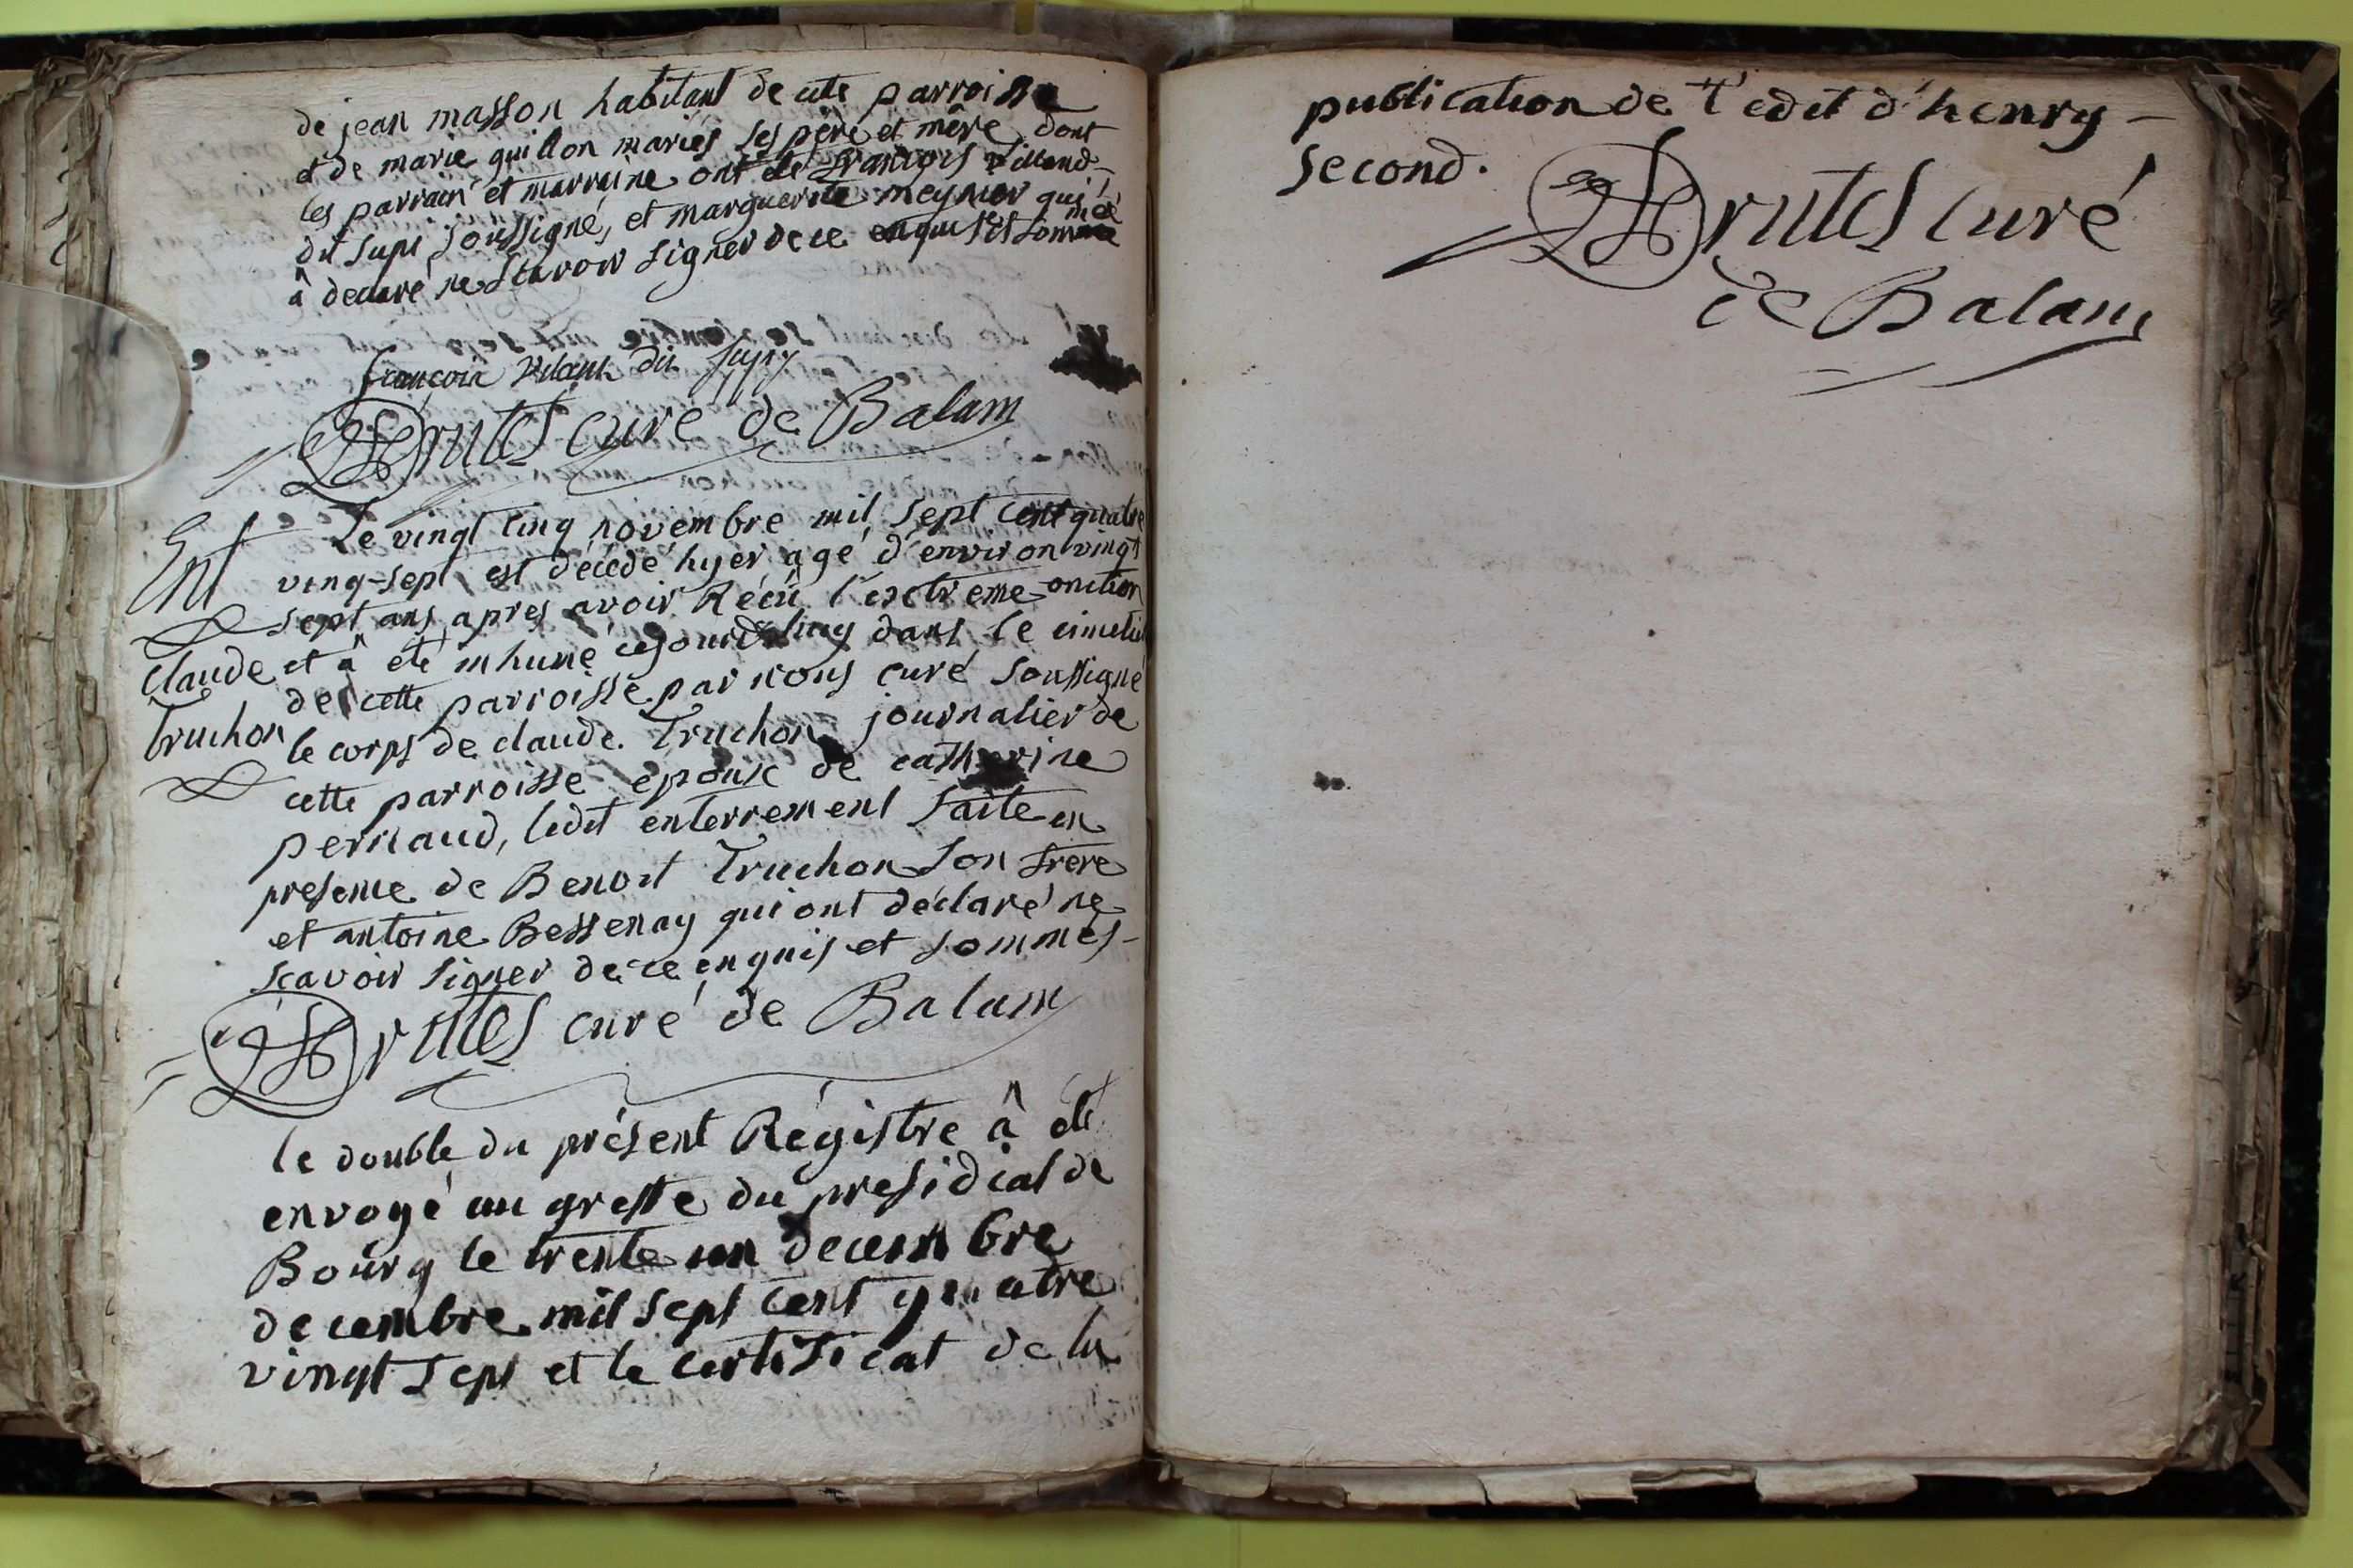 de jean masson habitant de cette parroisse
et de marie guillon mariés ses père et mère dont
les parrain et marraine ont été françois villand
dit supi soussigné, et marguerite meynier qui
â declaré ne scavoir signer de ce enquise et sommée
françois viland dit supy
Brutes curé de Balam
Le vingt cinq novembre mil sept cent quatre
ving-sept est décédé hyer agé d'environ vingt
sept ans apres avoir Réçû l'exctreme onction
et â été inhumé cejourdhuy dans le cimetie
de cette parroisse par nous curé soussigné
le corps de claude Truchon journalier de
cette parroisse epoux de catherine
pernaud, ledit enterrement faite en
presence de Benoit Truchon son frere
et antoine Bessenay qui ont déclaré ne
scavoir signer de ce enquis et sommés-
Brutes curé de Balam
Ent
claude
Truchon
le double du présent Régistre â été
envoyé au greffe du presidial de
Bourg le trente un decembre
decembre mil sept cent quatre
vingt sept et le certificat de la
publication de l'edit d'henry -
second.
Brutes curé
de Balam